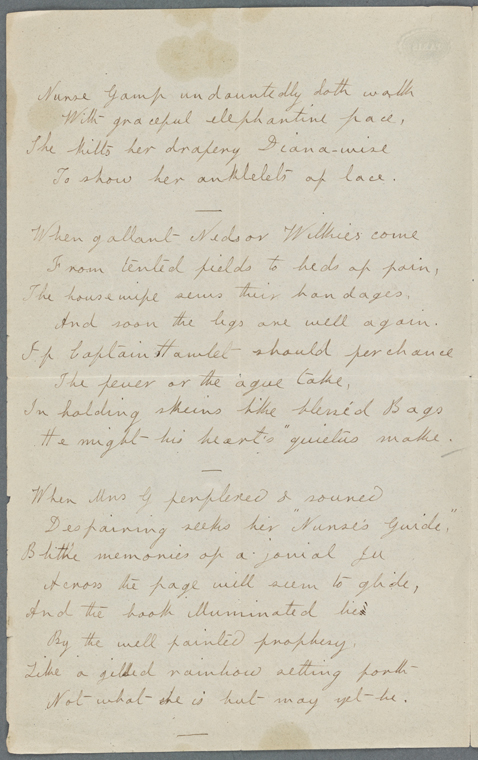 Nurse Gamp undauntedly doth walk
With graceful elephantine pace,
She kilts her drapery Diana-wise
To show her anklelets of lace.
When gallant Neds or Willkies come
From tented fields to beds of pain,
The housewife sews their bandages,
And soon the legs are well again.
If Captain Hamlet should perchance
The fever or the ague take,
In holding skeins like blessed Bags
He might his heart's "quietus make.
When Mrs G perplexed & soured
Despairing seeks her "Nurse's Guide,"
Blithe memories of a jovial
Across the page will seem to glide,
And the book illuminated lies
By the well painted prophesy,
Like a gilded rainbow setting forth
Not what she is but may yet be.